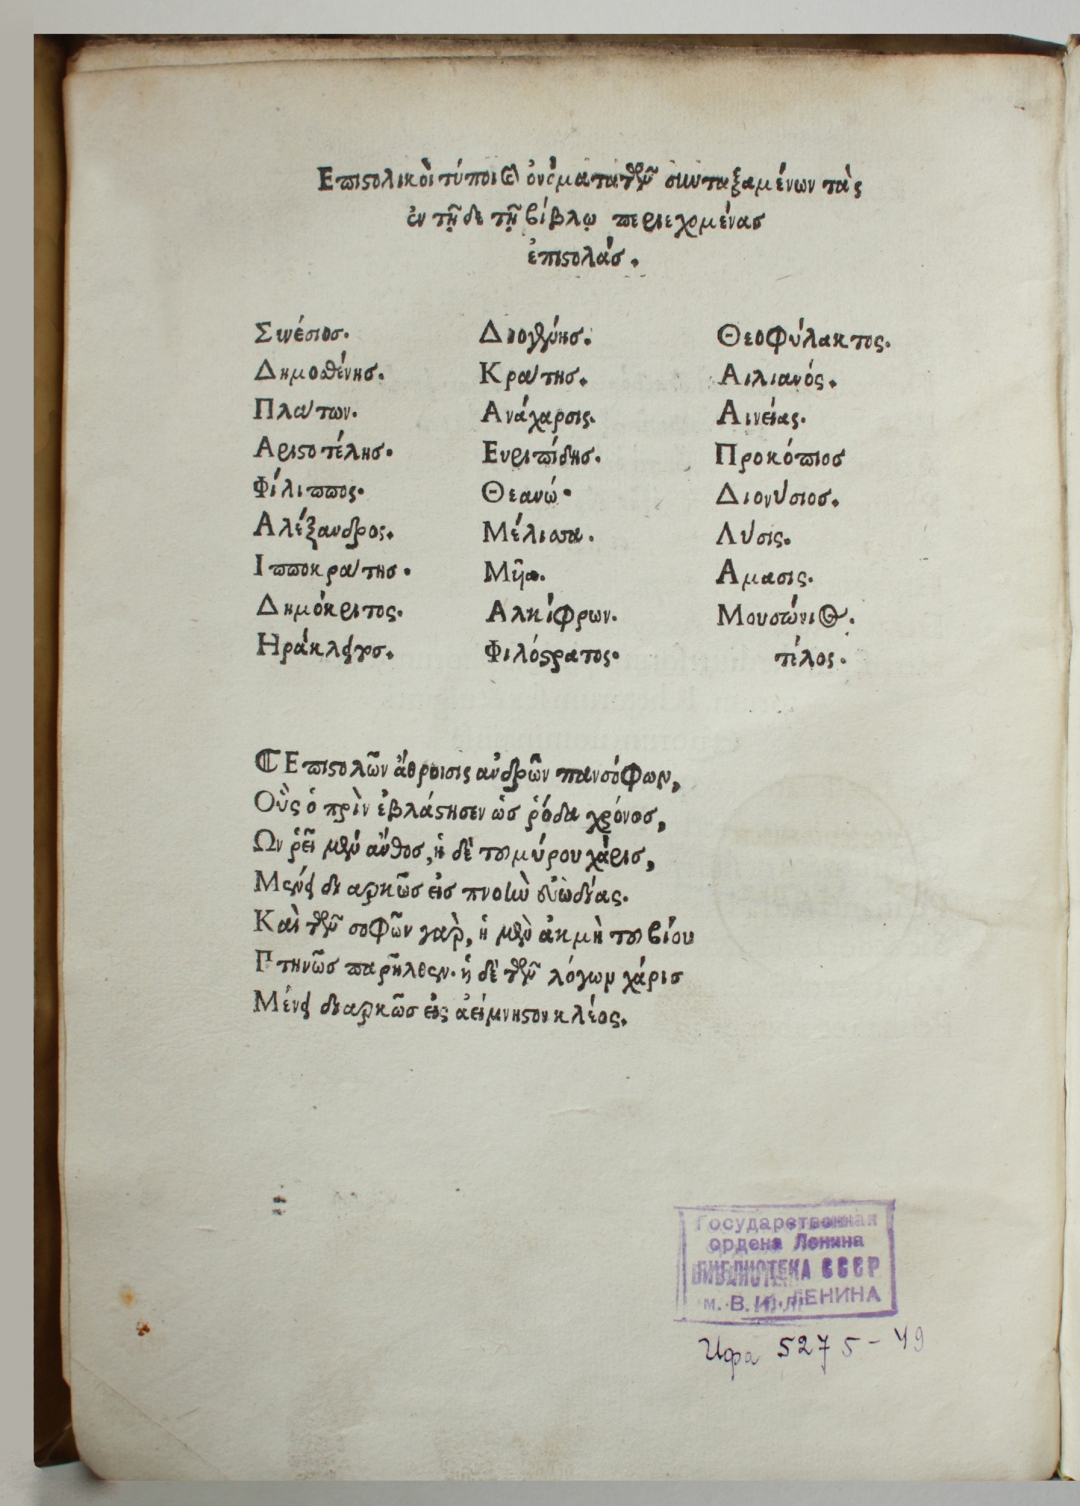 Επιστολικοὶ τύποι καὶ ὀνόματα τῶν συνταξαμένων τὰς
ἐν τῇ δε τῇ βίβλῳ περιεχομένας
ἐπιστολάς.
Συνέσιος.
Δημοσθένης.
Πλάτων.
Αριστοτέλης.
Φίλιππος.
Αλέξανδρος.
Ιπποκράτης.
Δημόκριτος.
Ηράκλειτος.
Διογένης.
Κράτης.
Ανάχαρσις.
Ευριπίδης.
Θεανώ.
Μέλισσα.
Μῦα.
Αλκίφρων.
Φιλόστρατος.
Θεοφύλακτος.
Αιλιανός.
Αινείας.
Προκόπιος
Διονύσιος.
Λύσις.
Αμασις.
Μουσώνιος.
τέλος.
Επιστολῶν ἄθροισις ἀνδρῶν πανσόφων,
Οὓς ὁ πρὶν ἐβλάστησεν ὡς ῥόδα χρόνος,
Ων ῥεῖ μὲν ἄνθος, ἡ δὲ του μύρου χάρις,
Μένει διαρκῶς εἰς πνοὴν εὐωδίας.
Καὶ τῶν σοφῶν γὰρ, ἡ μὲν ἀκμὴ του βίου
Πτηνῶς παρῆλθεν. ἡ δὲ τῶν λόγων χάρις
Μένει διαρκῶς εἰς ἀείμνηστον κλέος.
Государственная
ордена Ленина
БИБЛИОТЕКА СССР
м. В. И. ЛЕНИНА
Ифа 5275-49